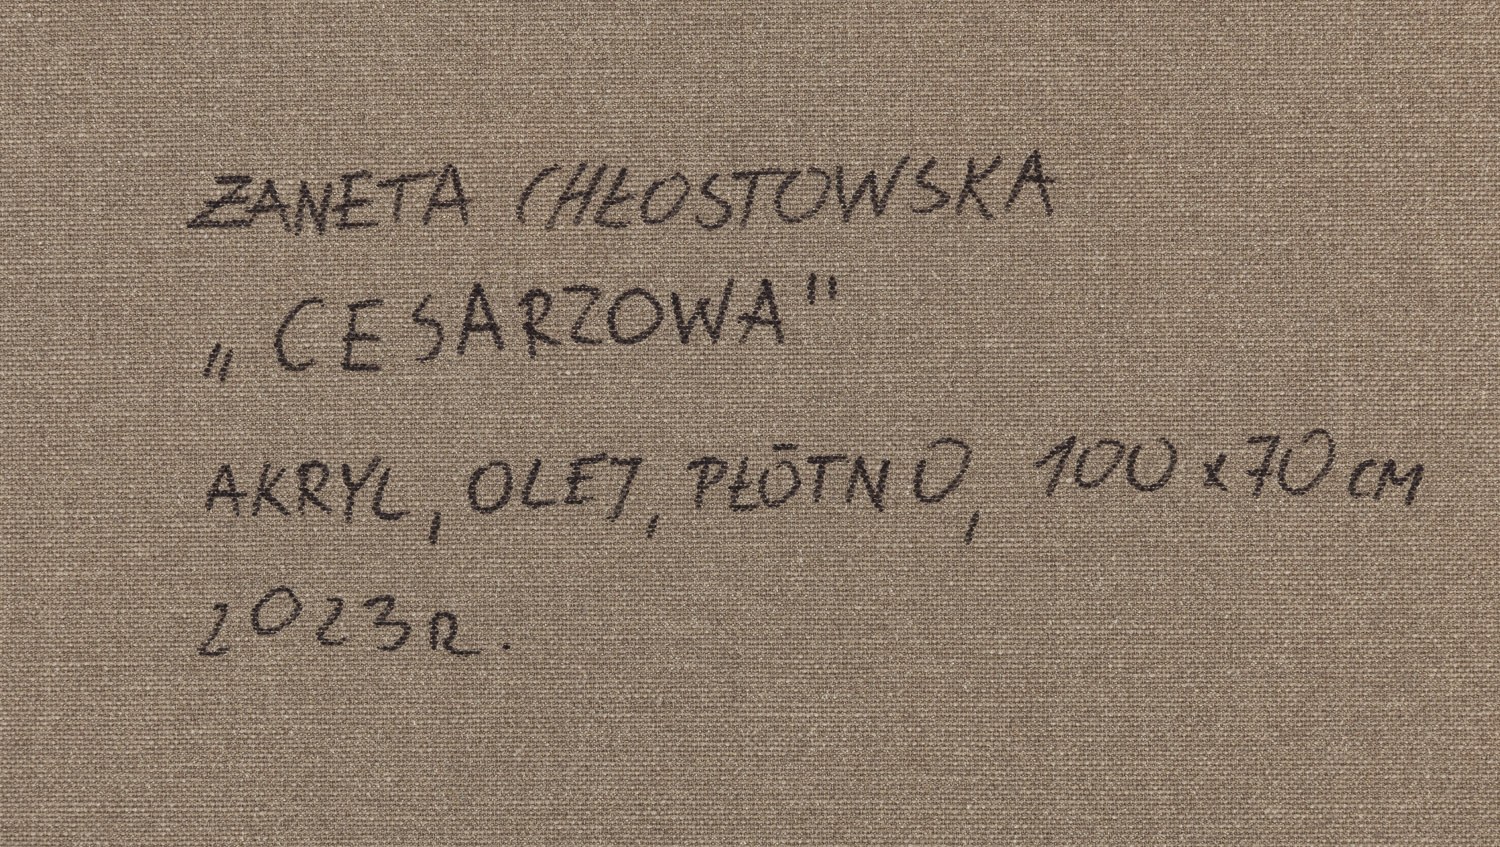 ŻANETA CHŁOSTOWSKA
„CESARZOWA"
AKRYL, OLEJ, PŁÓTNO, 100 x 70 cm
2023R.